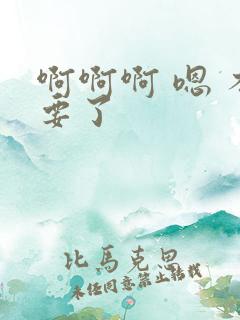 啊啊啊 嗯 不
要了
比馬克思
未经同意禁止转载